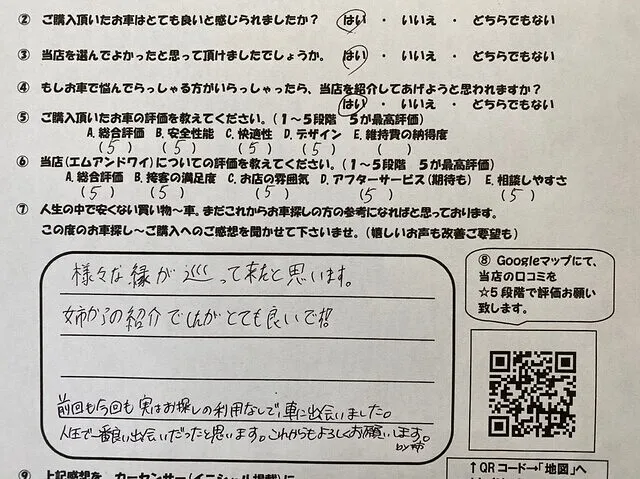 ② ご購入頂いたお車はとても良いと感じられましたか? はい ・ いいえ ・ どちらでもない
③ 当店を選んでよかったと思って頂けましたでしょうか。 はい ・ いいえ ・ どちらでもない
④ もしお車で悩んでらっしゃる方がいらっしゃったら、当店を紹介してあげようと思われますか?
はい ・ いいえ ・ どちらでもない
⑤ ご購入頂いたお車の評価を教えてください。(1~5段階 5が最高評価)
A.総合評価 B.安全性能 C.快適性 D.デザイン E.維持費の納得度
(5) (5) (5) (5) ( )
⑥ 当店(エムアンドワイ)についての評価を教えてください。(1~5段階 5が最高評価)
A.総合評価 B.接客の満足度 C.お店の雰囲気 D.アフターサービス(期待も) E.相談しやすさ
(5) (5) (5) (5) (5)
⑦ 人生の中で安くない買い物~車。まだこれからお車探しの方の参考になればと思っております。
この度のお車探し~ご購入へのご感想を聞かせて下さいませ。(嬉しいお声も改善ご要望も)
様々な縁が巡って来たと思います。
姉からの紹介でしたがとても良いです!!
前回も今回も実はお探しの利用なしで、車に出会いました。
人生で一番良い出会いだったと思います。これからもよろしくお願いします。
by 姉
⑧ Googleマップにて、
当店の口コミを
☆5段階で評価お願い
致します。
↑QRコード→「地図」へ
⑨ 上記感想を、カーセンサー(イニシャル掲載)に